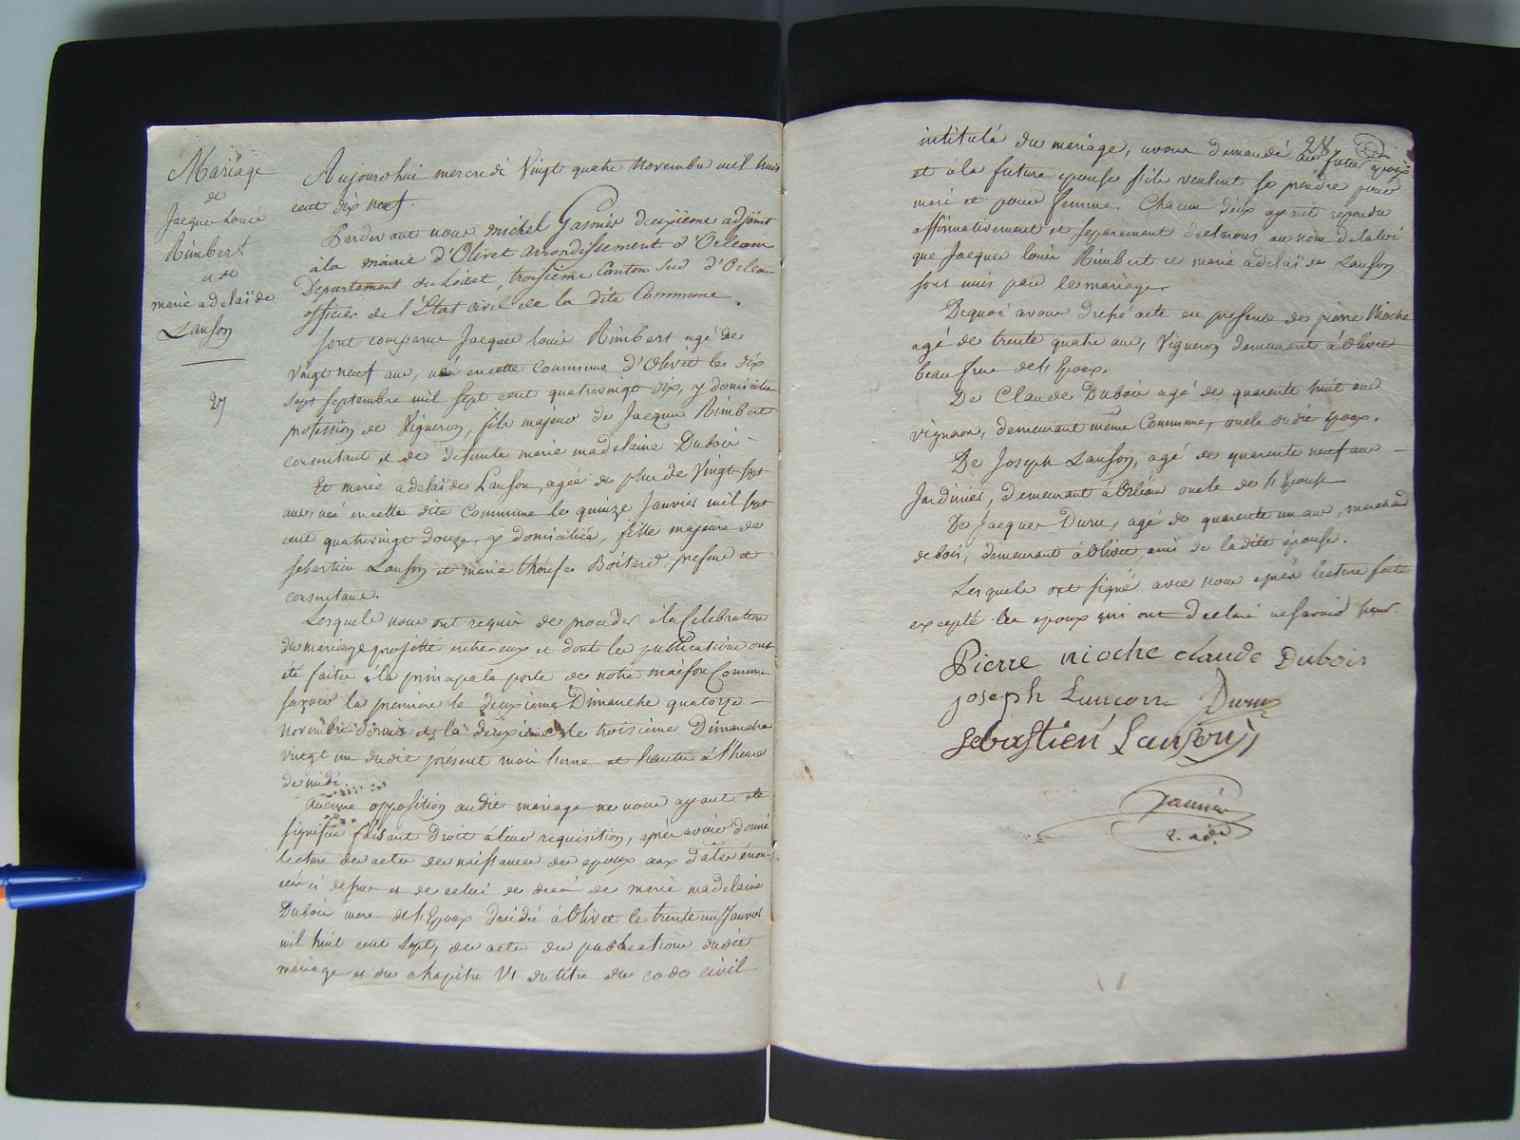 Mariage
de
Jacque Louis
Rimbert
et de
marie adelaïde
Lanson
27
Aujourdhui mercredi Vingt quatre Novembre mil huit
cent dix neuf.
Pardevant nous michel Gasnier deuxieme adjoint
à la mairie d'Olivet arrondissement d'Orleans
Departement du Loiret, troisieme Canton Sud d'Orleans
officier de l'Etat civil de la dite Commune.
Sont comparus Jacques Louis Rimbert agé de
Vingt neuf ans, né en cette commune d'Olivet le dix
sept septembre mil sept cent quatrevingt dix, y domicilié
profession de Vigneron, fils majeur de Jacque Rimbert
consentant et de defunte marie madelaine Dubois
Et marie adelaïde Lanson, agée de plus de Vingt sept
ans née en cette dite Commune le quinze Janvier mil sept
cent quatrevingt douze, y domiciliée, fille majeure de
Sebastien Lanson et marie therese Boitard, presens et
consentans.
Lesquels nous ont requis de proceder à la Celebration
du mariage projetté entre eux et dont les publications ont
été faites à la principale porte de notre maison Commune
savoir la premiere le deuxieme Dimanche quatorze
Novembre et la deuxieme le troisieme Dimanche
vingt un dudit présent mois heure à l'heure
de midi
Aucune opposition audit mariage ne nous ayant été
signifiée faisant Droit à leur requisition, après avoir donné
lecture des actes de naissances des epoux aux dates énon
cés ci dessus et de celui de décès de marie madelaine
Dubois mere de l'Epoux decedée à Olivet le trente un Janvier
mil huit cent sept, des actes de publications dudit
mariage et du chapitre VI du titre du code civil
28
intitulé du mariage, avons demandé au futur Epoux
et à la future epouse s'ils veulent se prendre pour
mari et pour femme. Chacun d'eux ayant repondu
affirmativement et separement declarons au nom de la loi
que Jacques louis Rimbert et marie adelaïde Lanson
sont unis par le mariage.
Dequoi avons dressé acte en presence de pierre Nioche
agé de trente quatre ans, Vigneron demeurant à Olivet
beau frere de l'Epoux.
De Claude Dubois agé de quarente huit ans
vigneron, demeurant même Commune, oncle dudit epoux.
De Joseph Lanson, agé de quarente neuf ans
Jardinier, demeurant à Orléans oncle de l'Epouse
De Jacques Duru, agé de quarente un ans, marchand
de bois, demeurant à Olivet, ami de la dite épouse.
Lesquels ont signé avec nous après lecture faite
excepté les epoux qui ont declaré ne savoir signer.
Pierre nioche claude Dubois
joseph Lancon Duru
Sebastien Lanson
Gasnier
2. adj.